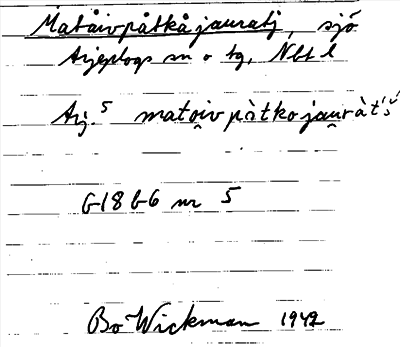 Matåivpåtkåjauratj, sjö
Arjeplogs sn o tg, Nbt l
Arj. 5 matoi̯vpàtkojau̯ràt́š́
G18 b6 nr 5
Bo Wickman 1942